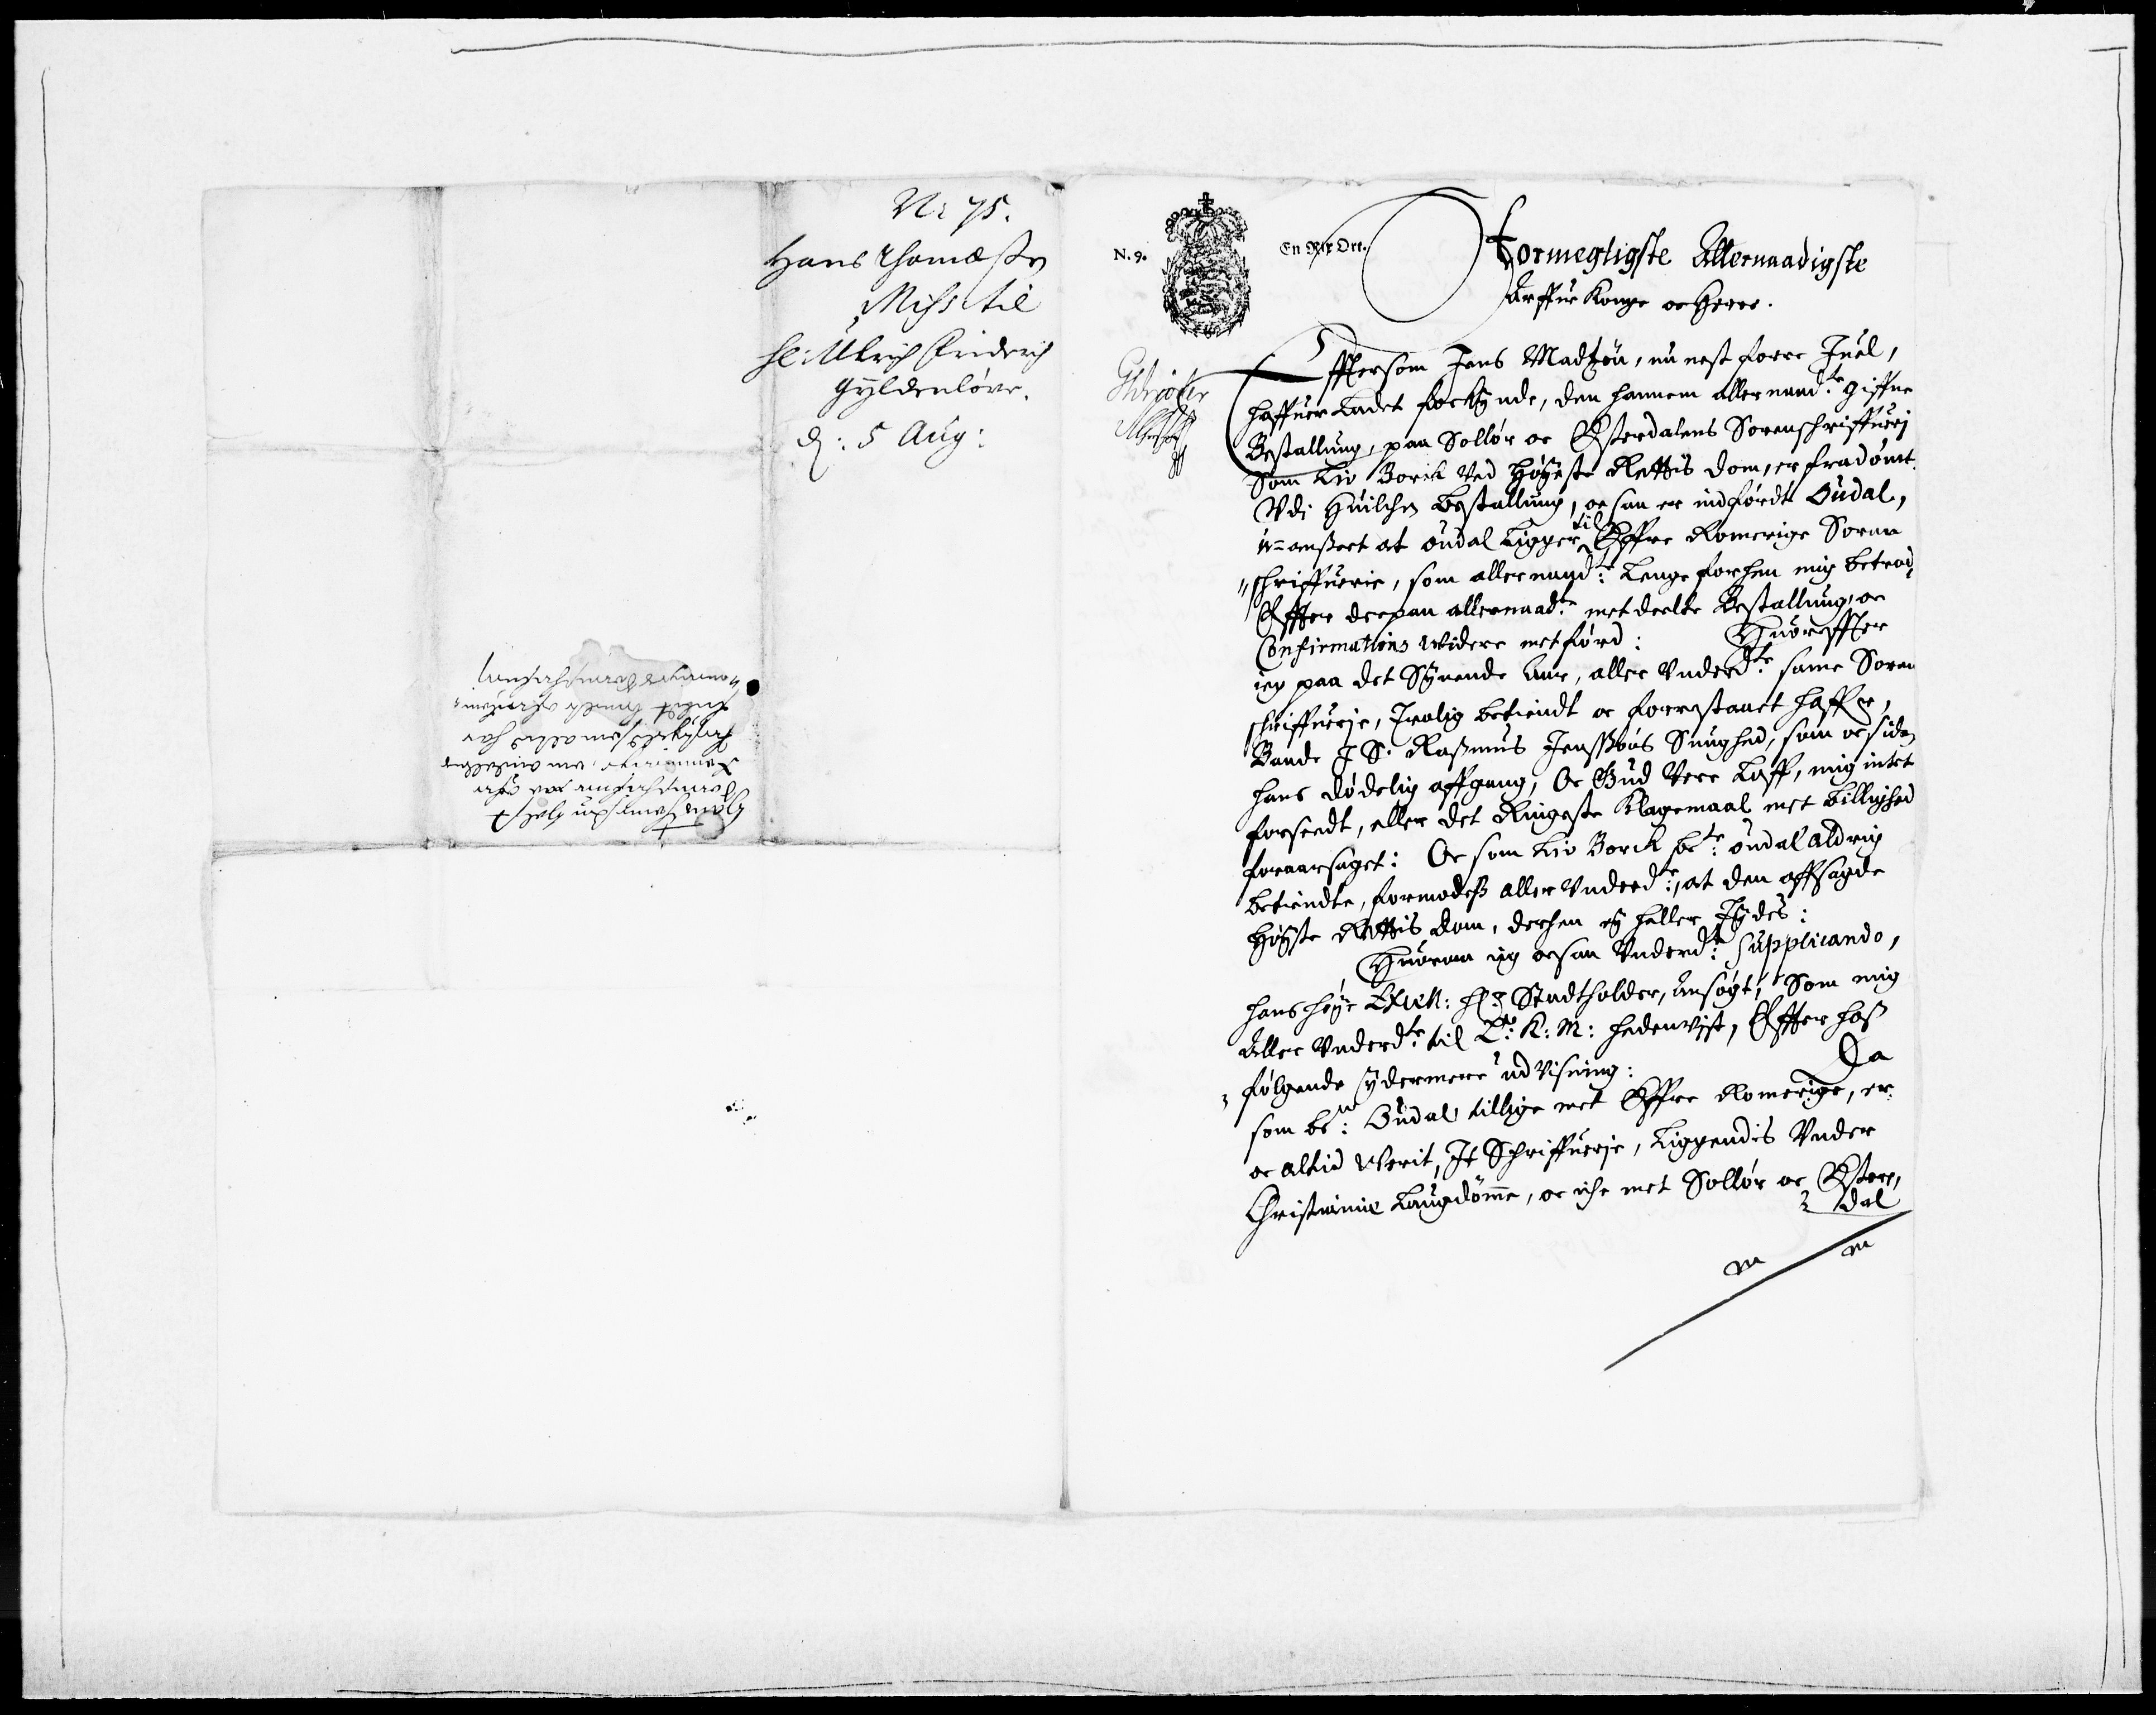 N: 75.
Hans Thomæßen
Miss: til
H: Ulrich Friderich
Gyldenløve.
d: 5 Aug:
N. 9.
En Rix Ort.
Stormegtigste Allernaadigste
Arffue Konge oc Herre.
Effttersom Jens Madtzøn, nu nest forre Juel,
haffuer Ladet forkynde, den hannem allernaadte: giffne
Bestallung, paa Sollør oc Østerdalens Sorenschriffuerj
Som Liv Borck Ved Høyeste Rettis dom, er fradømt.
Vdi Huilchen bestallung, oc saa er indførdt Oudal,
u=anßeet at oudal Ligger til Øffre Romerige Soren
schriffuerie, som allernaadte: Lenge forhen mig betrod
Effter derpaa allernaadte: metdeelte Bestallung, oc
Confirmations widere metførd: Huoreffter
ieg paa det Syvende Aar, aller Vnderdte: same Soren
schriffuerje, Trolig betiendt oc forrestaaet haffer,
Baade J S. Raßmus Jenssøns Suughed, som oc siden
hans dødelig affgang, Oc Gud Vere Loff, mig intet
forseedt, eller det Ringeste Klagemaal met billighed
foraarsaget: Oc som Liv Borck bete: oudal Aldrig
betiendte, formodeß aller Vnderdte:, at den affsagde
Høyste Rettis dom, derhen ey heller Tydes:
Huorom ieg ocsaa Vnderdte: Supplicando,
hans høye Excell: Hr: Stadtholder, Ansøgt, Som mig
Aller Vnderdte: til Eders: K: M: hedenvist, Effter hoß
følgende ydermere udVisning: Da
som bete: Oudal tillige met Øffre Romerige, er
oc altid Verit, It Schriffuerje, Liggendis Vnder
Christiania Laugdømme, oc iche met Sollør oc Øster,
dal